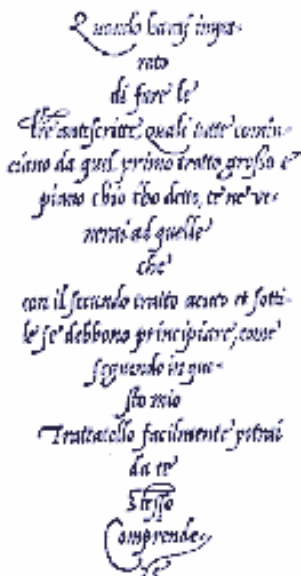 Quando haverai impa-
rato
di fare le
l're antescritte, quali tutte comin
ciano da quel primo tratto grosso e
piano ch'io t'ho detto, te ne ve-
nerai ad quelle
che
con il secundo tratto acuto et sotti-
le se debbono principiare, come
seguendo in que-
sto mio
Trattatello facilmente potrai
da te
stesso
Comprende-